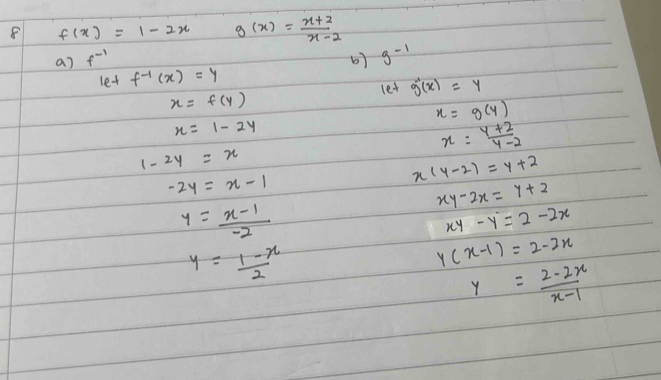 8 f(x) = 1 - 2x g(x) = \frac{x+2}{x-2}
a) f^{-1}
let f^{-1}(x) = y
x = f(y)
x = 1 - 2y
1 - 2y = x
-2y = x - 1
y = \frac{x-1}{-2}
y = \frac{1-x}{2}
b) g^{-1}
let g^{-1}(x) = y
x = g(y)
x = \frac{y+2}{y-2}
x(y-2) = y+2
xy-2x = y+2
xy - y = 2 - 2x
y(x-1) = 2-2x
y = \frac{2-2x}{x-1}